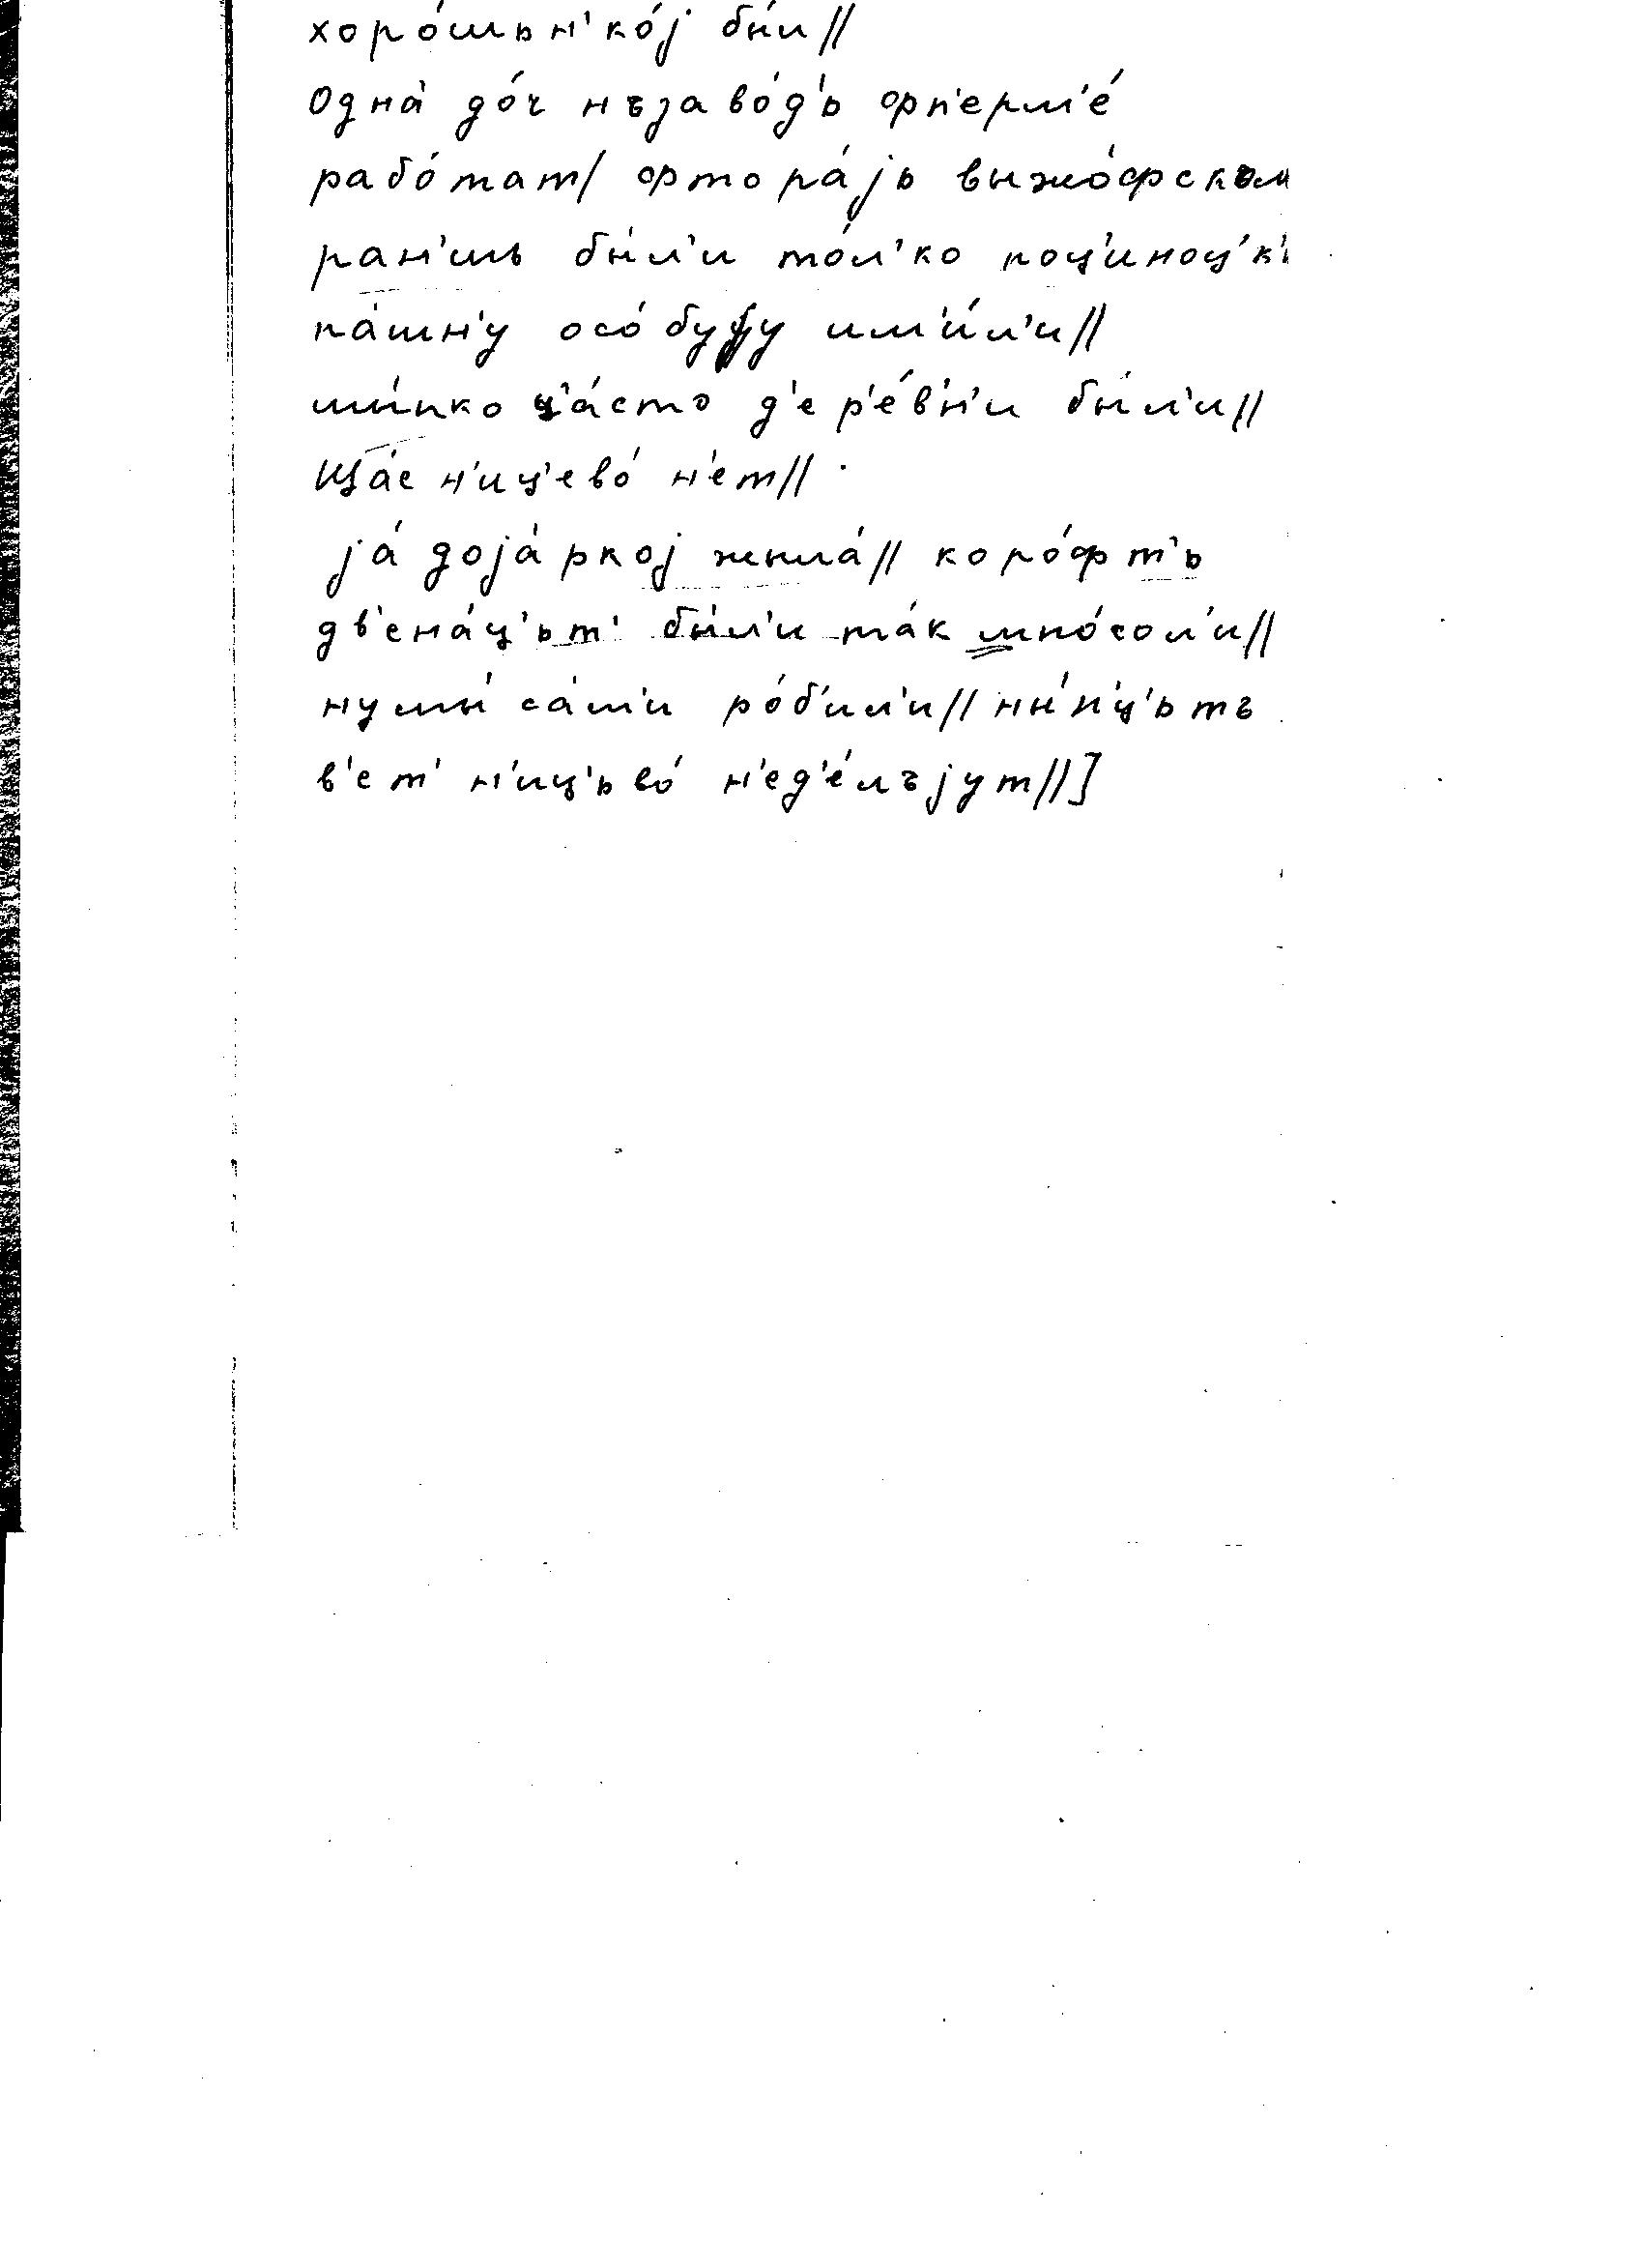 хоро́шьн'ко́j бы́л//
Одна́ до́ч нъзаво́д'ь фп'ерм'е́
рабо́тат/ фтора́jь выжо́фскъм
ран'шь бы́л'и то́л'ко поц'иноц'к'и
па́шн'у осо́буjу им'и́л'и//
шы́пко ц'а́сто д'ер'е́вн'и бы́л'и//
Ща́с н'иц'ево́ н'ет//
jа́ доjа́ркоj жыла́// коро́фт'ь
дв'ена́ц'ьт' бы́л'и та́к мно́гол'и//
нумы́ са́м'и ро́б'ил'и// ны́н'ц'ьтъ
в'ет' н'иц'ьво́ н'ед'е́лъjут//]